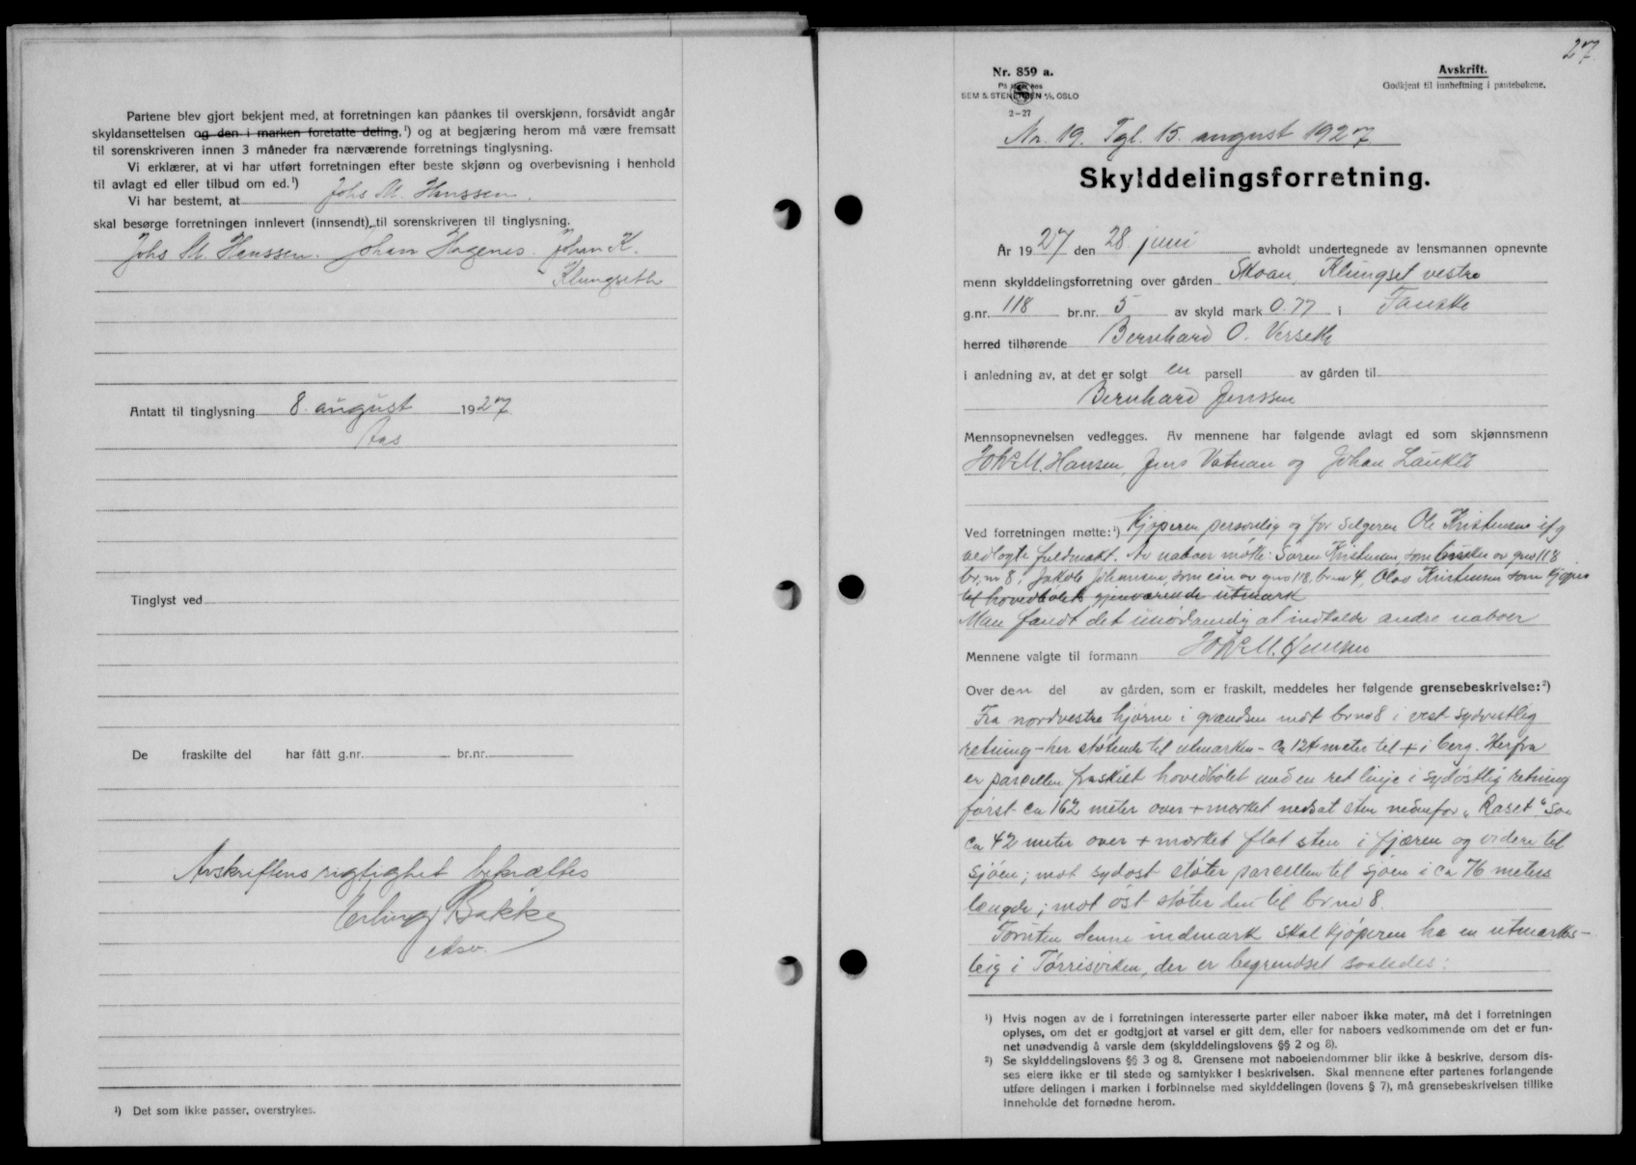 Partene blev gjort bekjent med, at forretningen kan påankes til overskjønn, forsåvidt angår
skyldansettelsen og den i marken foretatte deling,¹) og at begjæring herom må være fremsatt
til sorenskriveren innen 3 måneder fra nærværende forretnings tinglysning.
Vi erklærer, at vi har utført forretningen efter beste skjønn og overbevisning i henhold
til avlagt ed eller tilbud om ed.¹)
Vi har bestemt, at Johs M. Hanssen.
skal besørge forretningen innlevert (innsendt) til sorenskriveren til tinglysning.
Johs M. Hanssen. Johan Hagenes. Johan K.
Klungseth
Antatt til tinglysning 8. august 1927
Aas
Tinglyst ved
De fraskilte del har fått g.nr. br.nr.
Avskriftens rigtighet bekræftes
Erling Bakke
¹) Det som ikke passer, overstrykes.
27
Nr. 859 a.
SEM & STENERSEN A/S, OSLO
2-27
Avskrift.
Godkjent til innheftning i pantebøkene.
Nr. 19. Tgl. 15. august 1927
Skylddelingsforretning.
År 1927 den 28. juni avholdt undertegnede av lensmannen opnevnte
menn skylddelingsforretning over gården Moan, Klungset vestre
g.nr. 118 br.nr. 5 av skyld mark 0.77 i Fauske
herred tilhørende Bernhard O. Verseth
i anledning av, at det er solgt en parsell av gården til
Bernhard Jenssen
Mennsopnevnelsen vedlegges. Av mennene har følgende avlagt ed som skjønnsmenn
Johs M. Hansen, Jens Vatnan og Johan Laukli
Ved forretningen møtte:¹) Kjøperen personlig og for selgeren Ole Kristensen ifg
vedlagte fuldmakt. Av naboer møtte: Søren Kristensen som bruker av gno 118
br. nr 8, Jakob Johansen, som eier av gno 118, br. nr 4, Olav Kristensen som kjøper
til hovedbølet gjenværende utmark
Man fandt det unødvendig at indkalde andre naboer
Mennene valgte til formann Johs M. Jensen
Over den del av gården, som er fraskilt, meddeles her følgende grensebeskrivelse:²)
Fra nordvestre hjørne i grændsen mot brno 8 i vest sydvestlig
retning - her støtende til utmarken - ca 124 meter til + i berg. Herfra
er parcellen fraskilt hovedbølet med en ret linje i sydøstlig retning
først ca 162 meter over + merket nedsat sten nedenfor "Raset" saa
ca 42 meter over + merket flat sten i fjæren og videre til
sjøen; mot sydost støter parcellen til sjøen i ca 76 meters
længde; mot øst støter den til brno 8.
Foruten denne indmark skal kjøperen ha en utmarks-
teig i Tørrisviken, der er begrændset saaledes:
¹) Hvis nogen av de i forretningen interesserte parter eller naboer ikke møter, må det i forretningen
oplyses, om det er godtgjort at varsel er gitt dem, eller for naboers vedkommende om det er fun-
net unødvendig å varsle dem (skylddelingslovens §§ 2 og 8).
²) Se skylddelingslovens §§ 3 og 8. Grensene mot naboeiendommer blir ikke å beskrive, dersom dis-
ses eiere ikke er til stede og samtykker i beskrivelsen. Skal mennene efter partenes forlangende
utføre delingen i marken i forbinnelse med skylddelingen (lovens § 7), må grensebeskrivelsen tillike
inneholde det fornødne herom.